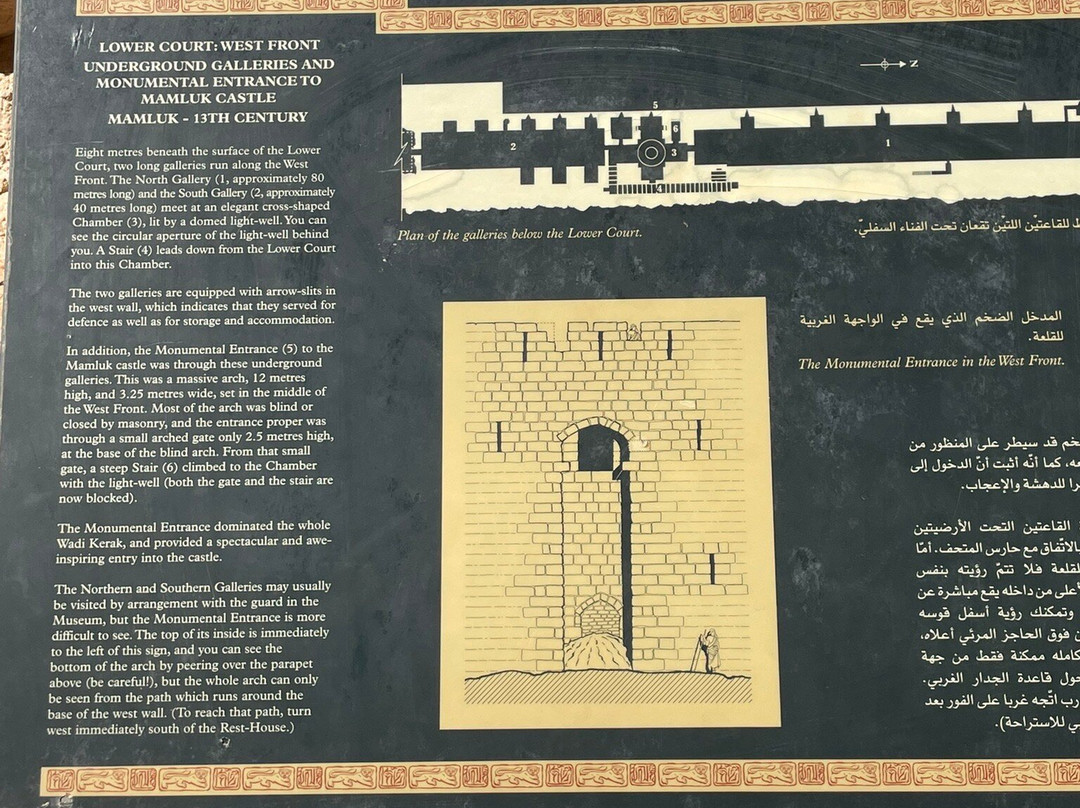 LOWER COURT: WEST FRONT
UNDERGROUND GALLERIES AND
MONUMENTAL ENTRANCE TO
MAMLUK CASTLE
MAMLUK - 13TH CENTURY
Eight metres beneath the surface of the Lower
Court, two long galleries run along the West
Front. The North Gallery (1, approximately 80
metres long) and the South Gallery (2, approximately
40 metres long) meet at an elegant cross-shaped
Chamber (3), lit by a domed light-well. You can
see the circular aperture of the light-well behind
you. A Stair (4) leads down from the Lower Court
into this Chamber.
The two galleries are equipped with arrow-slits in
the west wall, which indicates that they served for
defence as well as for storage and accommodation.
In addition, the Monumental Entrance (5) to the
Mamluk castle was through these underground
galleries. This was a massive arch, 12 metres
high, and 3.25 metres wide, set in the middle of
the West Front. Most of the arch was blind or
closed by masonry, and the entrance proper was
through a small arched gate only 2.5 metres high,
at the base of the blind arch. From that small
gate, a steep Stair (6) climbed to the Chamber
with the light-well (both the gate and the stair are
now blocked).
The Monumental Entrance dominated the whole
Wadi Kerak, and provided a spectacular and awe-
inspiring entry into the castle.
The Northern and Southern Galleries may usually
be visited by arrangement with the guard in the
Museum, but the Monumental Entrance is more
difficult to see. The top of its inside is immediately
to the left of this sign, and you can see the
bottom of the arch by peering over the parapet
above (be careful!), but the whole arch can only
be seen from the path which runs around the
base of the west wall. (To reach that path, turn
west immediately south of the Rest-House.)
N
5
6
2
3
1
Plan of the galleries below the Lower Court.
للقاعتيْن اللتيْن تقعان تحت الفناء السفليّ.
المدخل الضخم الذي يقع في الواجهة الغربية
للقلعة.
The Monumental Entrance in the West Front.
قد سيطر على المنظور من
كما أنّه أثبت أنّ الدخول إلى
للدهشة والإعجاب.
القاعتين التحت الأرضيتين
بالاتّفاق مع حارس المتحف. أمّا
فلا تتمّ رؤيته بنفس
من داخله يقع مباشرة عن
وتمكنك رؤية أسفل قوسه
فوق الحاجز المرئي أعلاه،
كامله ممكنة فقط من جهة
حول قاعدة الجدار الغربي.
اتّجه غربا على الفور بعد
للاستراحة).